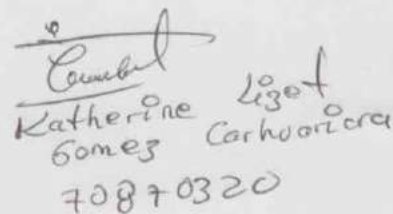 Katherine Lizet
Gomez Carhuaricra
70870320